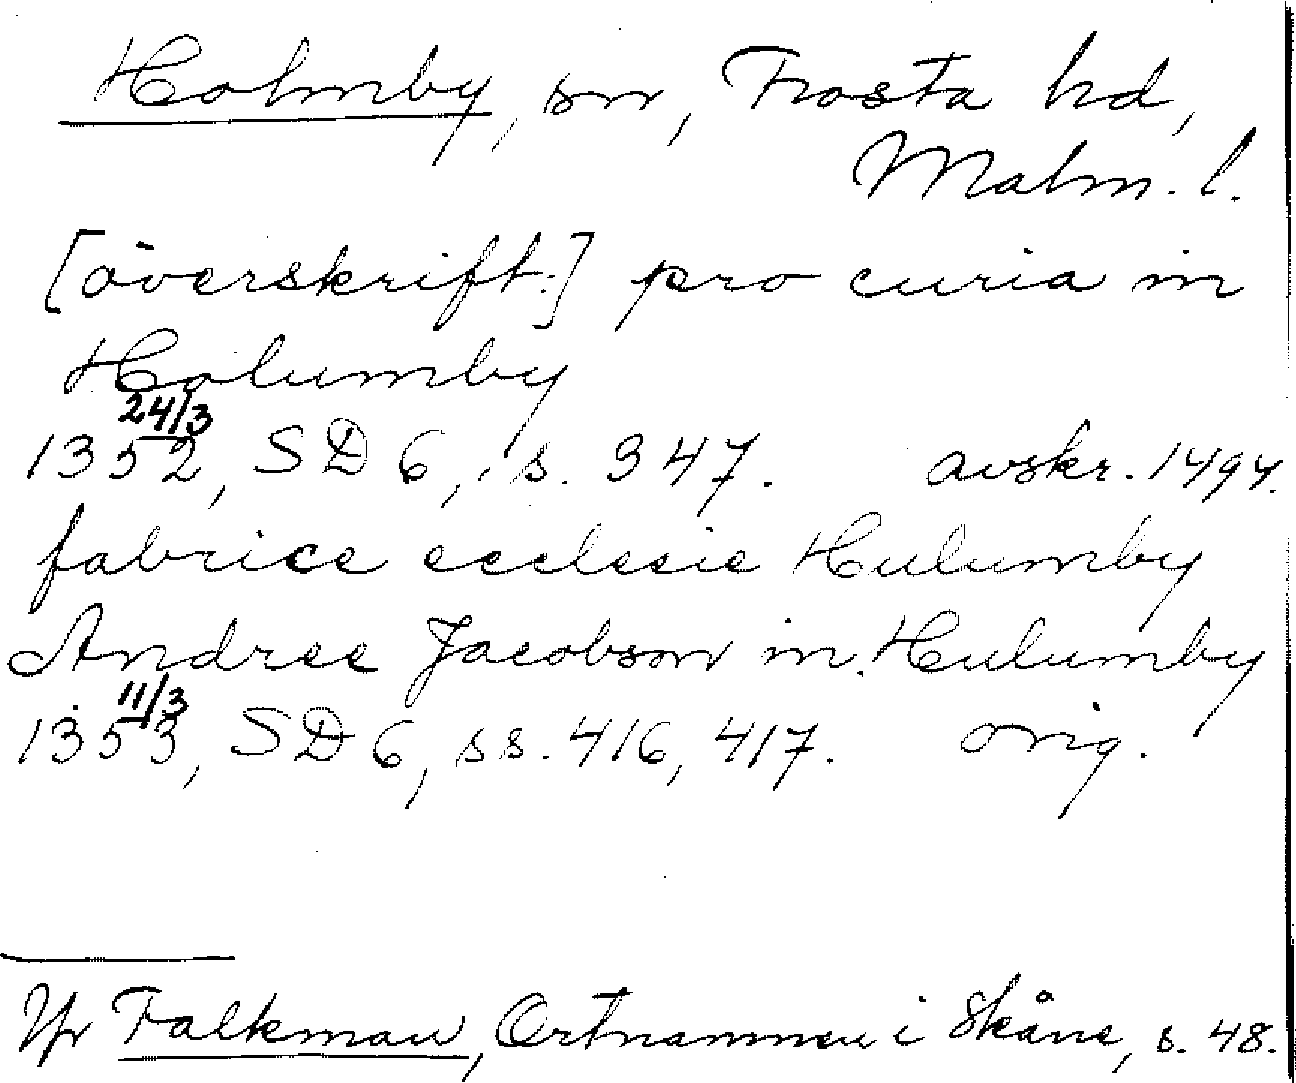 Holmby, sn, Frosta hd,
Malm. l.
[överskrift:] pro curia in
Holumby
24/3
1352, SD 6, s. 347. avskr. 1494.
fabrice ecclesie Hulumby
Andree Jacobson in Hulumby
11/3
1353, SD 6, ss. 416, 417. orig.
Jfr Falkman, Ortnamnen i Skåne, s. 48.